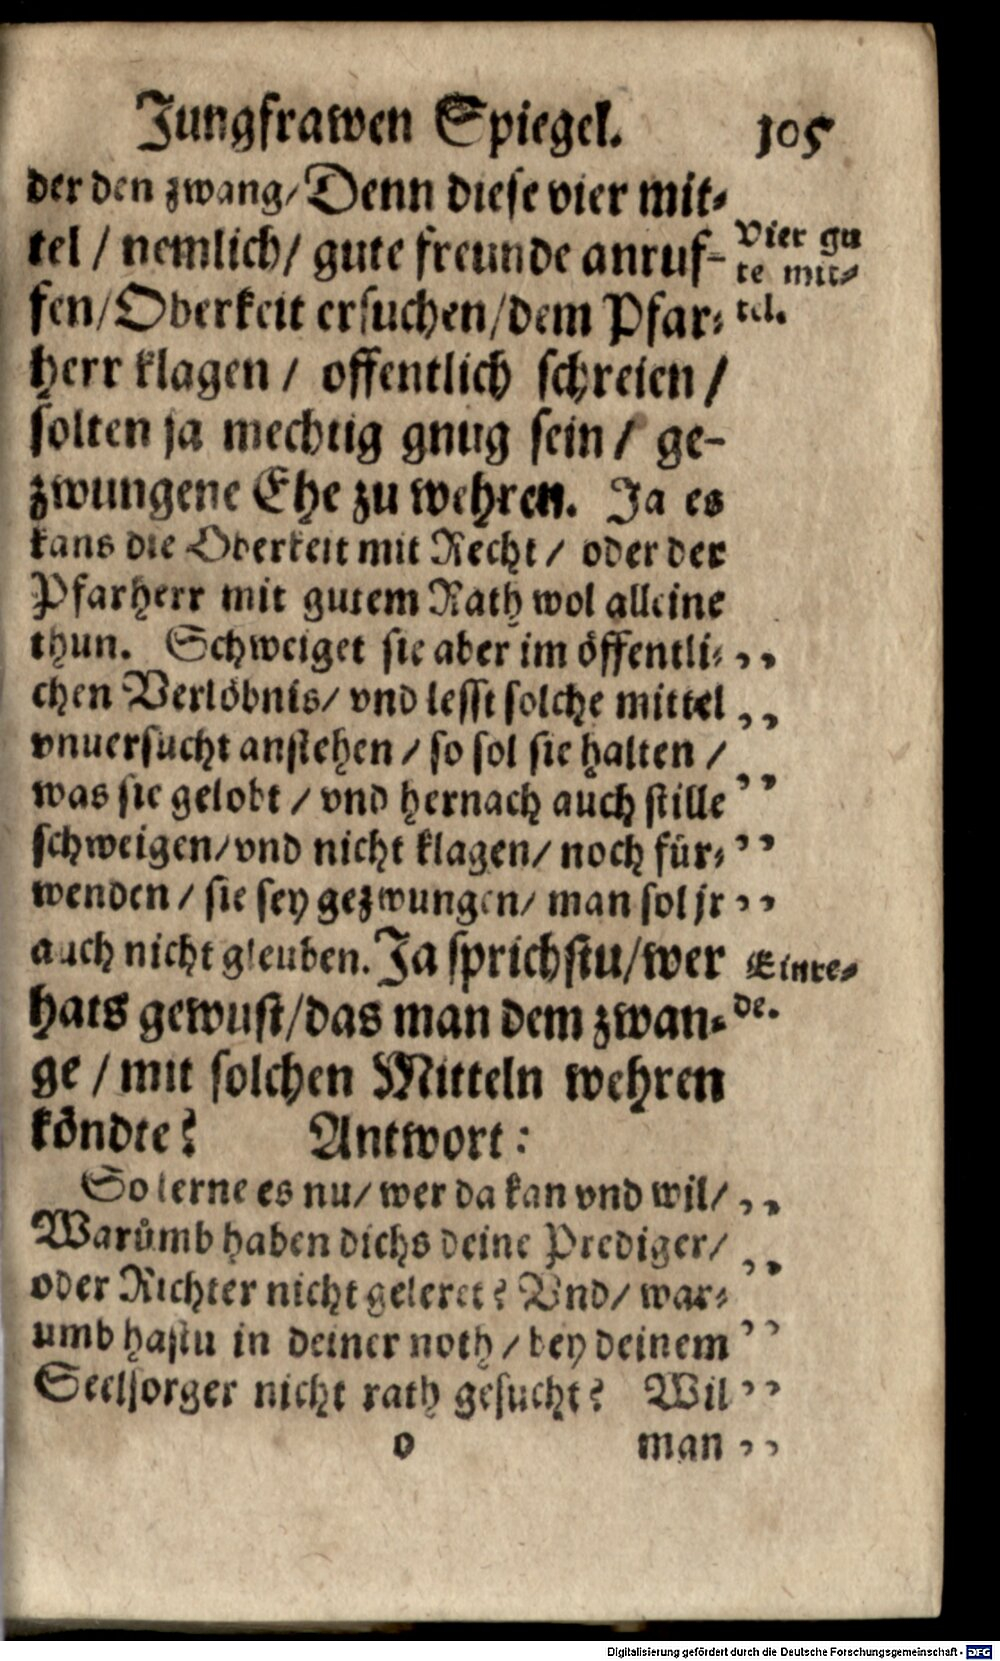 Jungfrawen Spiegel. 105
der den zwang/ Denn diese vier mit⸗
tel / nemlich/ gute freunde anruf-
fen/ Oberkeit ersuchen/ dem Pfar⸗
herr klagen / offentlich schreien /
solten ja mechtig gnug sein / ge-
zwungene Ehe zu wehren. Ja es
kans die Oberkeit mit Recht / oder der
Pfarherr mit gutem Rath wol alleine
thun. Schweiget sie aber im öffentli⸗ ,,
chen Verlöbnis/ vnd lesst solche mittel ,,
vnuersucht anstehen / so sol sie halten /
was sie gelobt / vnd hernach auch stille ,,
schweigen/ vnd nicht klagen/ noch für⸗ ,,
wenden / sie sey gezwungen/ man sol jr ,,
auch nicht gleuben. Ja sprichstu/ wer
hats gewust/ das man dem zwan⸗
ge / mit solchen Mitteln wehren
köndte? Antwort:
So lerne es nu/ wer da kan vnd wil/ ,,
Warůmb haben dichs deine Prediger/ ,,
oder Richter nicht geleret? Vnd/ war⸗
umb hastu in deiner noth / bey deinem ,,
Seelsorger nicht rath gesucht? Wil ,,
o man ,,
Vier gu
te mit⸗
tel.
Einre⸗
de.
Digitalisierung gefördert durch die Deutsche Forschungsgemeinschaft - DFG